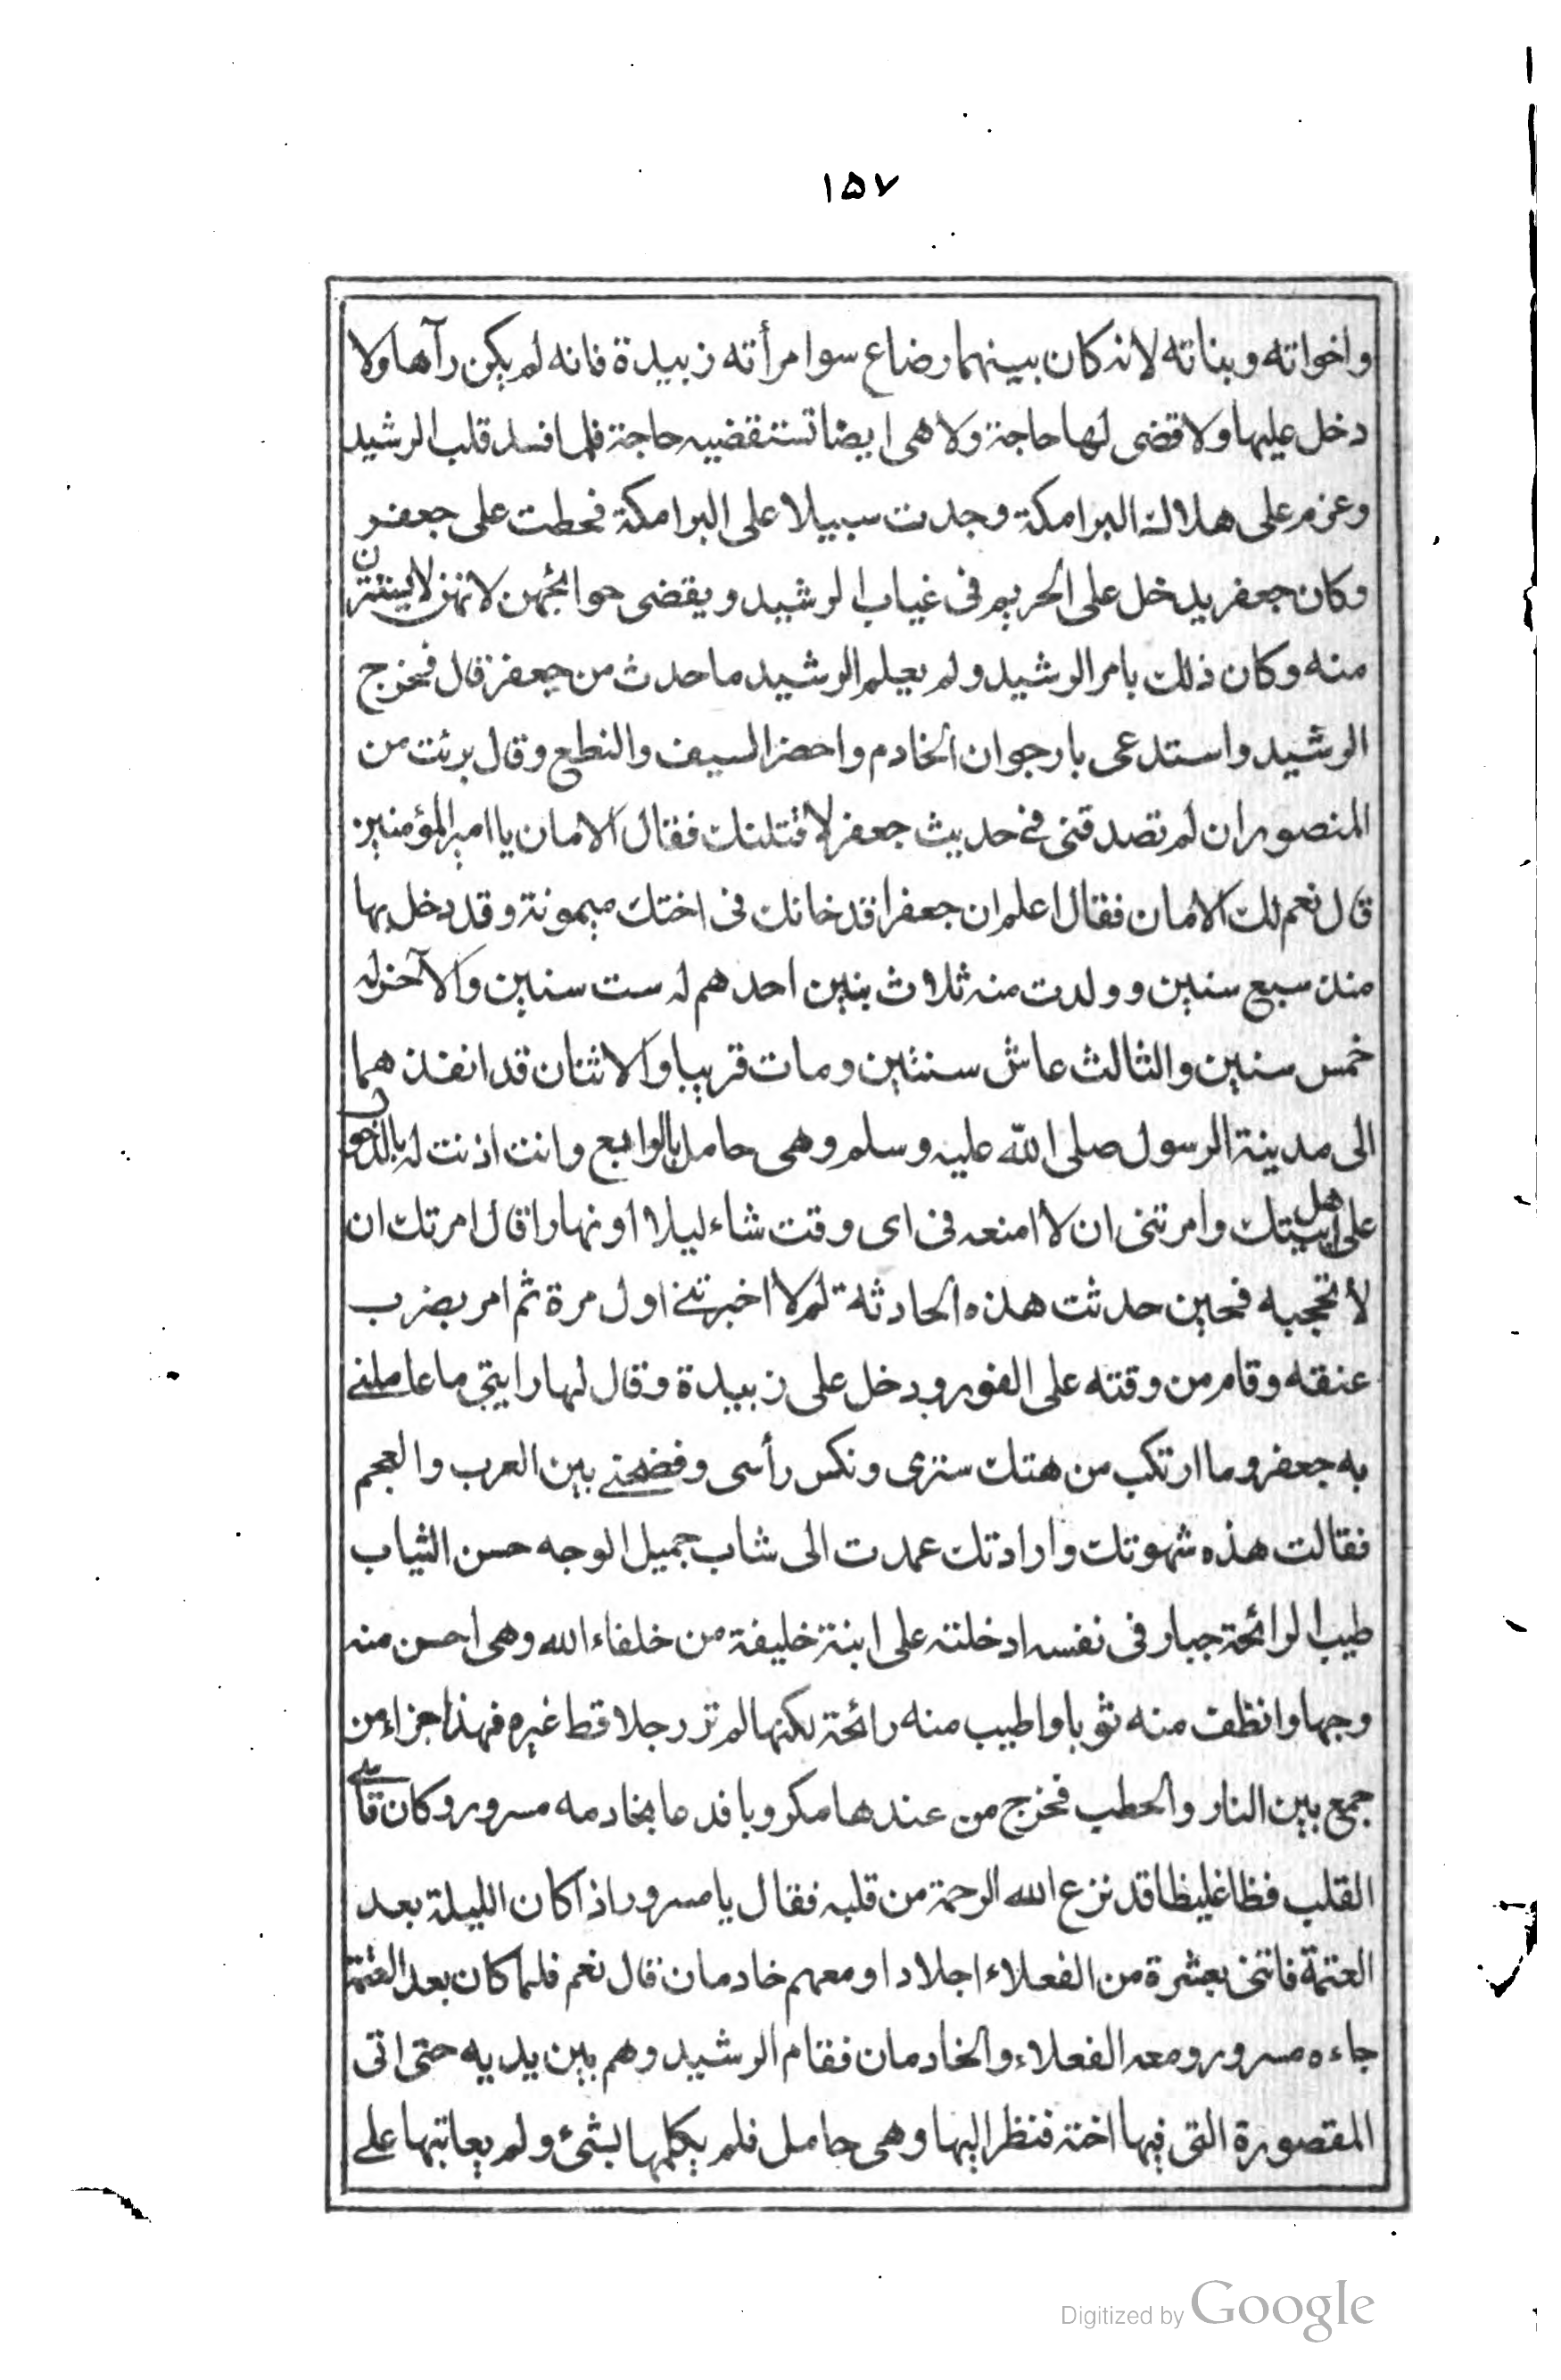 ١٥٧
واخواته وبناته لانه كان بينهما رضاع سوا مرأته زبيدة فانه لم يكن رآها ولا
دخل عليها ولا قضى لها حاجة ولا هى ايضا تستقضيه حاجة فلما فسد قلب الرشيد
وعزم على هلاك البرامكة وجدت سبيلا على البرامكة فحطت على جعفر
وكان جعفر يدخل على الحريم فى غياب الرشيد ويقضى حوائجهن لانهن لا يستترن
منه وكان ذلك بامر الرشيد ولم يعلم الرشيد ما حدث من جعفر قال فخرج
الرشيد واستدعى بارجوان الخادم واحضر السيف والنطع وقال برئت من
المنصور ان لم تصدقنى فے حديث جعفر لاقتلنك فقال الامان يا امير المؤمنين
قال نعم لك الامان فقال اعلم ان جعفرا قد خانك فى اختك ميمونة وقد دخل بها
منذ سبع سنين وولدت منه ثلاث بنين احدهم له ست سنين والآخر له
خمس سنين والثالث عاش سنتين ومات قريبا والاثنان قد انفذهما
الى مدينة الرسول صلى الله عليه وسلم وهى حامل بالرابع وانت اذنت له بالدخول
على اهل بيتك وامرتنى ان لا امنعه فى اى وقت شاء ليلا او نهارا قال امرتك ان
لا تحجبه فحين حدثت هذه الحادثة لم لا اخبرتنے اول مرة ثم امر بضرب
عنقه وقام من وقته على الفور ودخل على زبيدة وقال لها رايتى ما عاملنے
به جعفر وما ارتكب من هتك سترى ونكس رأسى وفضحنے بين العرب والعجم
فقالت هذه شهوتك وارادتك عمدت الى شاب جميل الوجه حسن الثياب
طيب الرائحة جبار فى نفسه ادخلته على ابنة خليفة من خلفاء الله وهى احسن منه
وجها وانظف منه ثوبا واطيب منه رائحة لكنها لم تر رجلا قط غيره فهذا جزاء من
جمع بين النار والحطب فخرج من عندها مكروبا فدعا بخادمه مسرور وكان قاسے
القلب فظا غليظا قد نزع الله الرحمة من قلبه فقال يا مسرور اذا كان الليلة بعد
العتمة فاتنى بعشرة من الفعلاء اجلادا ومعهم خادمان قال نعم فلما كان بعد العتمة
جاءه مسرور ومعه الفعلاء والخادمان فقام الرشيد وهم بين يديه حتى اتى
المقصورة التى فيها اخته فنظر اليها وهى حامل فلم يكلمها بشئ ولم يعاتبها علے
Digitized by Google